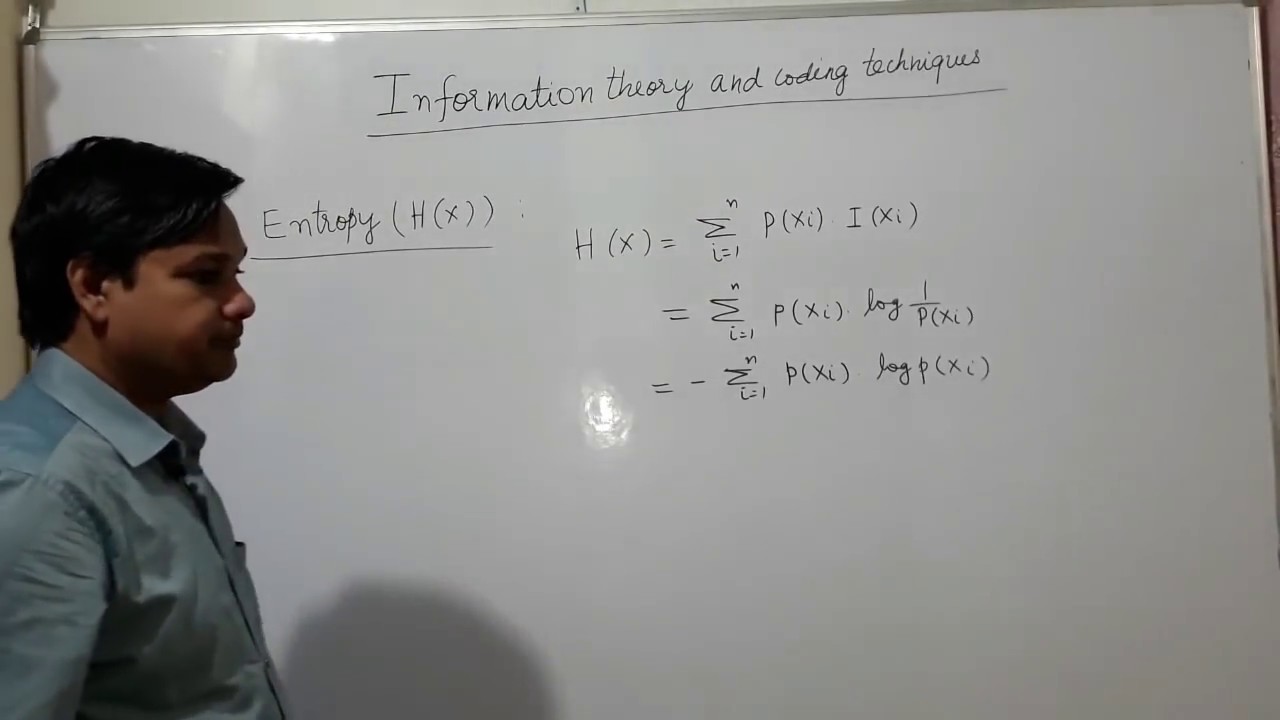 Information theory and coding techniques
Entropy (H(x)) :
H(x) = ∑_{i=1}^{n} P(xi) · I(xi)
= ∑_{i=1}^{n} P(xi) · log 1/P(xi)
= - ∑_{i=1}^{n} P(xi) · log p(xi)